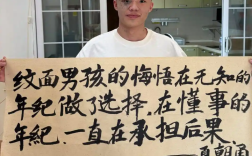 纹面男孩的悔悟在无知的
年纪做了选择,在懂事的
年纪.一直在承担后果